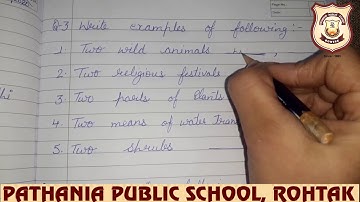 Q.3 Write examples of following:-
1. Two wild animals
2. Two religious festivals
3 Two parts of Plants
4. Two means of water Tran
5. Two shrubs
PATHANIA PUBLIC SCHOOL, ROHTAK